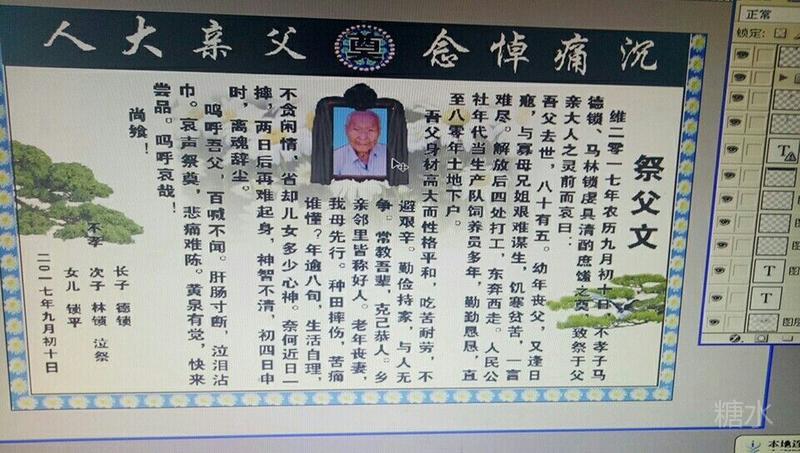 沉痛悼念奠父亲大人
祭父文
维二零一七年农历九月初十日，不孝子马
德锁、马林锁虔具清酌庶馐之奠，致祭于父
亲大人之灵前而哀曰：
吾父去世，八十有五。幼年丧父，又逢日
寇，与寡母兄姐艰难谋生，饥寒贫苦，一言
难尽。解放后四处打工，东奔西走。人民公
社年代当生产队饲养员多年，勤勤恳恳，直
至八零年土地下户。
吾父身材高大而性格平和，吃苦耐劳，不
避艰辛。勤俭持家，与人无
争。常教吾辈，克己恭人。乡
亲邻里皆称好人。老年丧妻，
我母先行。种田摔伤，苦痛
谁懂？年逾八旬，生活自理，
不贪闲情，省却儿女多少心神。奈何近日一
摔，两日后再难起身，神智不清，初四日申
时，离魂辞尘。
呜呼吾父，百喊不闻。肝肠寸断，泣泪沾
巾。哀声祭奠，悲痛难陈。黄泉有觉，快来
尝品。呜呼哀哉！
尚飨！
不孝
长子 德锁
次子 林锁 泣祭
女儿 锁平
二〇一七年九月初十日
正常
锁定:
T
T
T
本地连
糖水